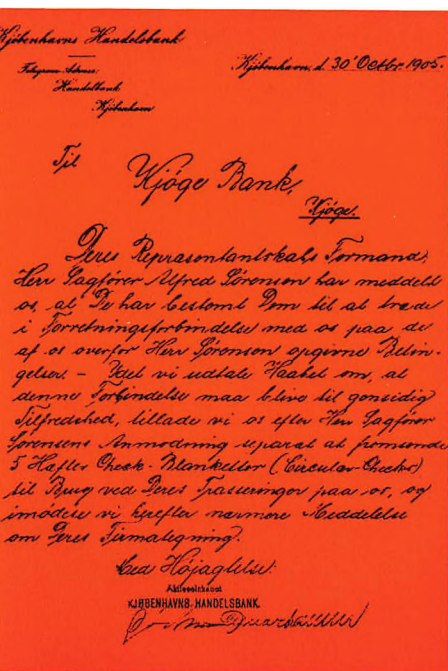 Kjöbenhavns Handelsbank
Telegram-Adresse:
Handelbank
Kjöbenhavn
Kjöbenhavn, d. 30' Octbr. 1905.
Til
Kjöge Bank,
Kjöge.
Deres Repræsentantskabs Formand,
Herr Sagfører Alfred Sørensen har meddelt
os, at De har bestemt Dem til at træde
i Forretningsforbindelse med os paa de
af os overfor Herr Sørensen opgivne Betin-
gelser. – Idet vi udtale Haabet om, at
denne Forbindelse maa blive til gensidig
Tilfredshed, tillade vi os efter Herr Sagfører
Sørensens Anmodning separat at fremsende
5 Hæfter Check-Blanketter (Circular-Checks)
til Brug ved Deres Trasseringer paa os, og
imødese vi herefter nærmere Meddelelse
om Deres Firmategning.
Med Højagtelse:
Aktieselskabet
KJØBENHAVNS HANDELSBANK.